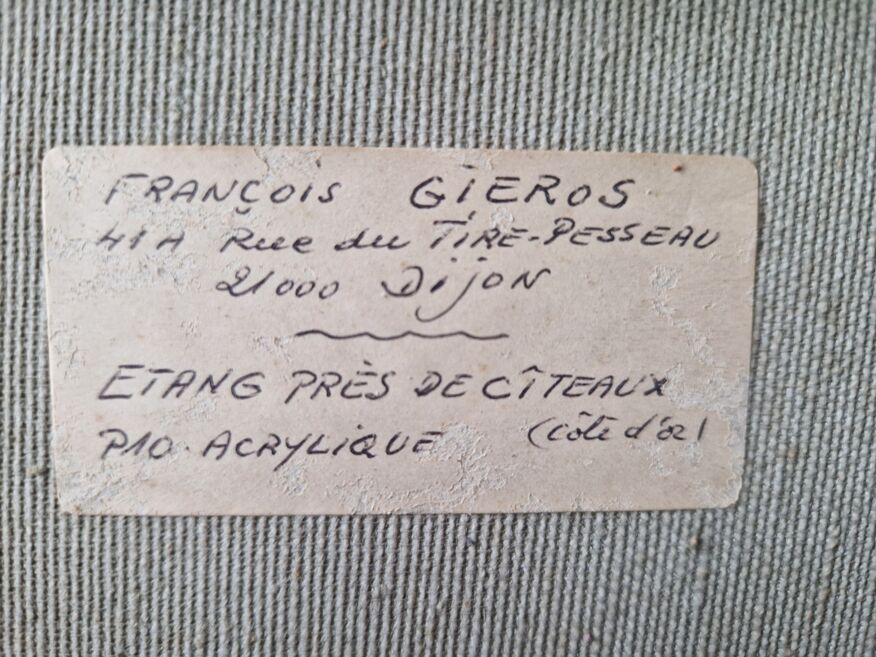 FRANÇOIS GIEROS
41A Rue du TIRE-PESSEAU
21000 DIJON
ETANG PRÈS DE CÎTEAUX
P10. ACRYLIQUE (côte d'or)